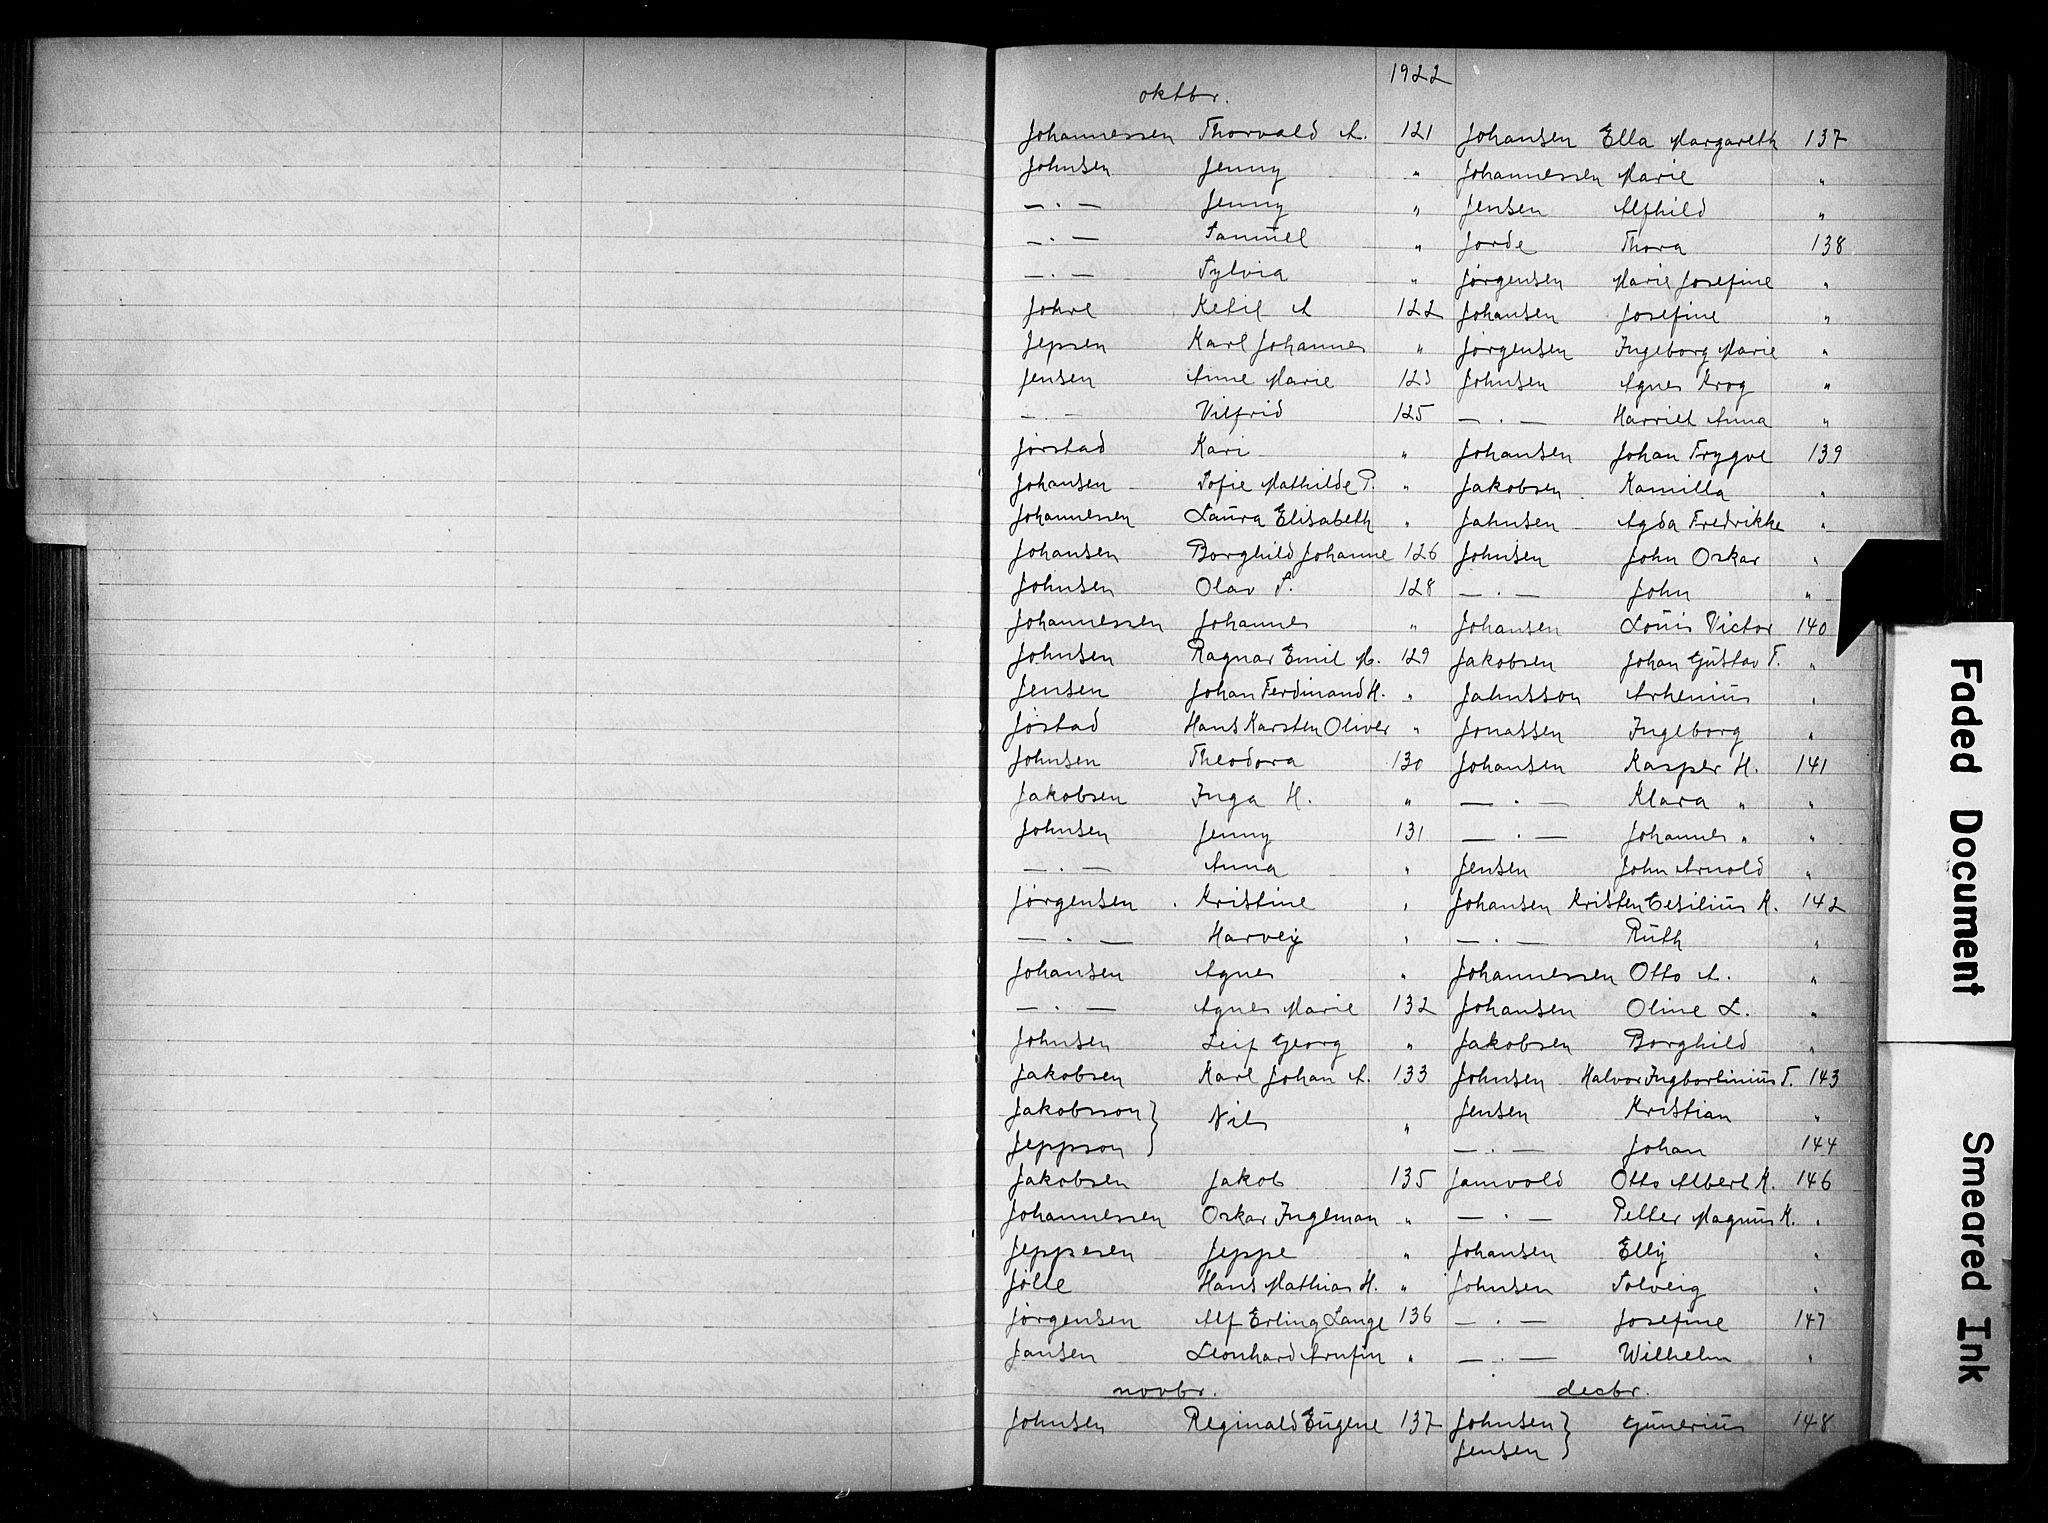 1922
oktbr.
Johannessen Thorvald A. 121
Johnsen Jenny "
— . — Jenny "
— . — Samuel "
— . — Sylvia "
Johre Ketil A 122
Jepsen Karl Johannes "
Jensen Anne Marie 123
— . — Vilfrid 125
Jørstad Kari "
Johansen Sofie Mathilde P. "
Johannessen Laura Elisabeth "
Johansen Borghild Johanne 126
Johnsen Olav S. 128
Johannessen Johannes "
Johnsen Ragnar Emil M. 129
Jensen Johan Ferdinand H. "
Jøstad Hans Karsten Oliver "
Johnsen Theodora 130
Jakobsen Inga H. "
Johnsen Jenny 131
— . — Anna "
Jørgensen Kristine "
— . — Harvey "
Johansen Agnes "
— . — Agnes Marie 132
Johnsen Leif Georg "
Jakobsen Karl Johan A. 133
Jakobsson } Nils "
Jeppson }
Jakobsen Jakob 135
Johannessen Oskar Ingeman "
Jeppesen Jeppe "
Jølle Hans Mathias H. "
Jørgensen Alf Erling Lange 136
Jansen Leonhard "
novbr.
Johnsen Reginald Eugene 137
Johansen Ella Margareth 137
Johannessen Marie "
Jensen Alfhild "
Jorde Thora 138
Jørgensen Marie Josefine "
Johansen Josefine "
Jørgensen Ingeborg Marie "
Johnsen Agnes Krog "
— . — Harriet Anna "
Johansen Johan Trygve 139
Jakobsen Kamilla "
Jahnsen Agda Fredrikke "
Johnsen John Oskar "
— . — John "
Johansen Louis Victor 140
Jakobsen Johan Gustav F. "
Jahnsson Arhenius "
Jonassen Ingeborg "
Johansen Kasper H. 141
— . — Klara " "
— . — Johannes " "
Jensen John Arnold "
Johansen Kristen Cesilius K. 142
— . — Ruth "
Johannessen Otto A. "
Johansen Oline L. "
Jakobsen Borghild "
Johnsen Halvor T. 143
Jensen Kristian "
— . — Johan 144
Jamvold Otto Albert K. 146
— . — Petter Magnus K. "
Johansen Elly "
Johnsen Solveig "
— . — Josefine 147
— . — Wilhelm "
decbr.
Johnsen } Gunerius 148
Jensen }
Faded Document
Smeared Ink